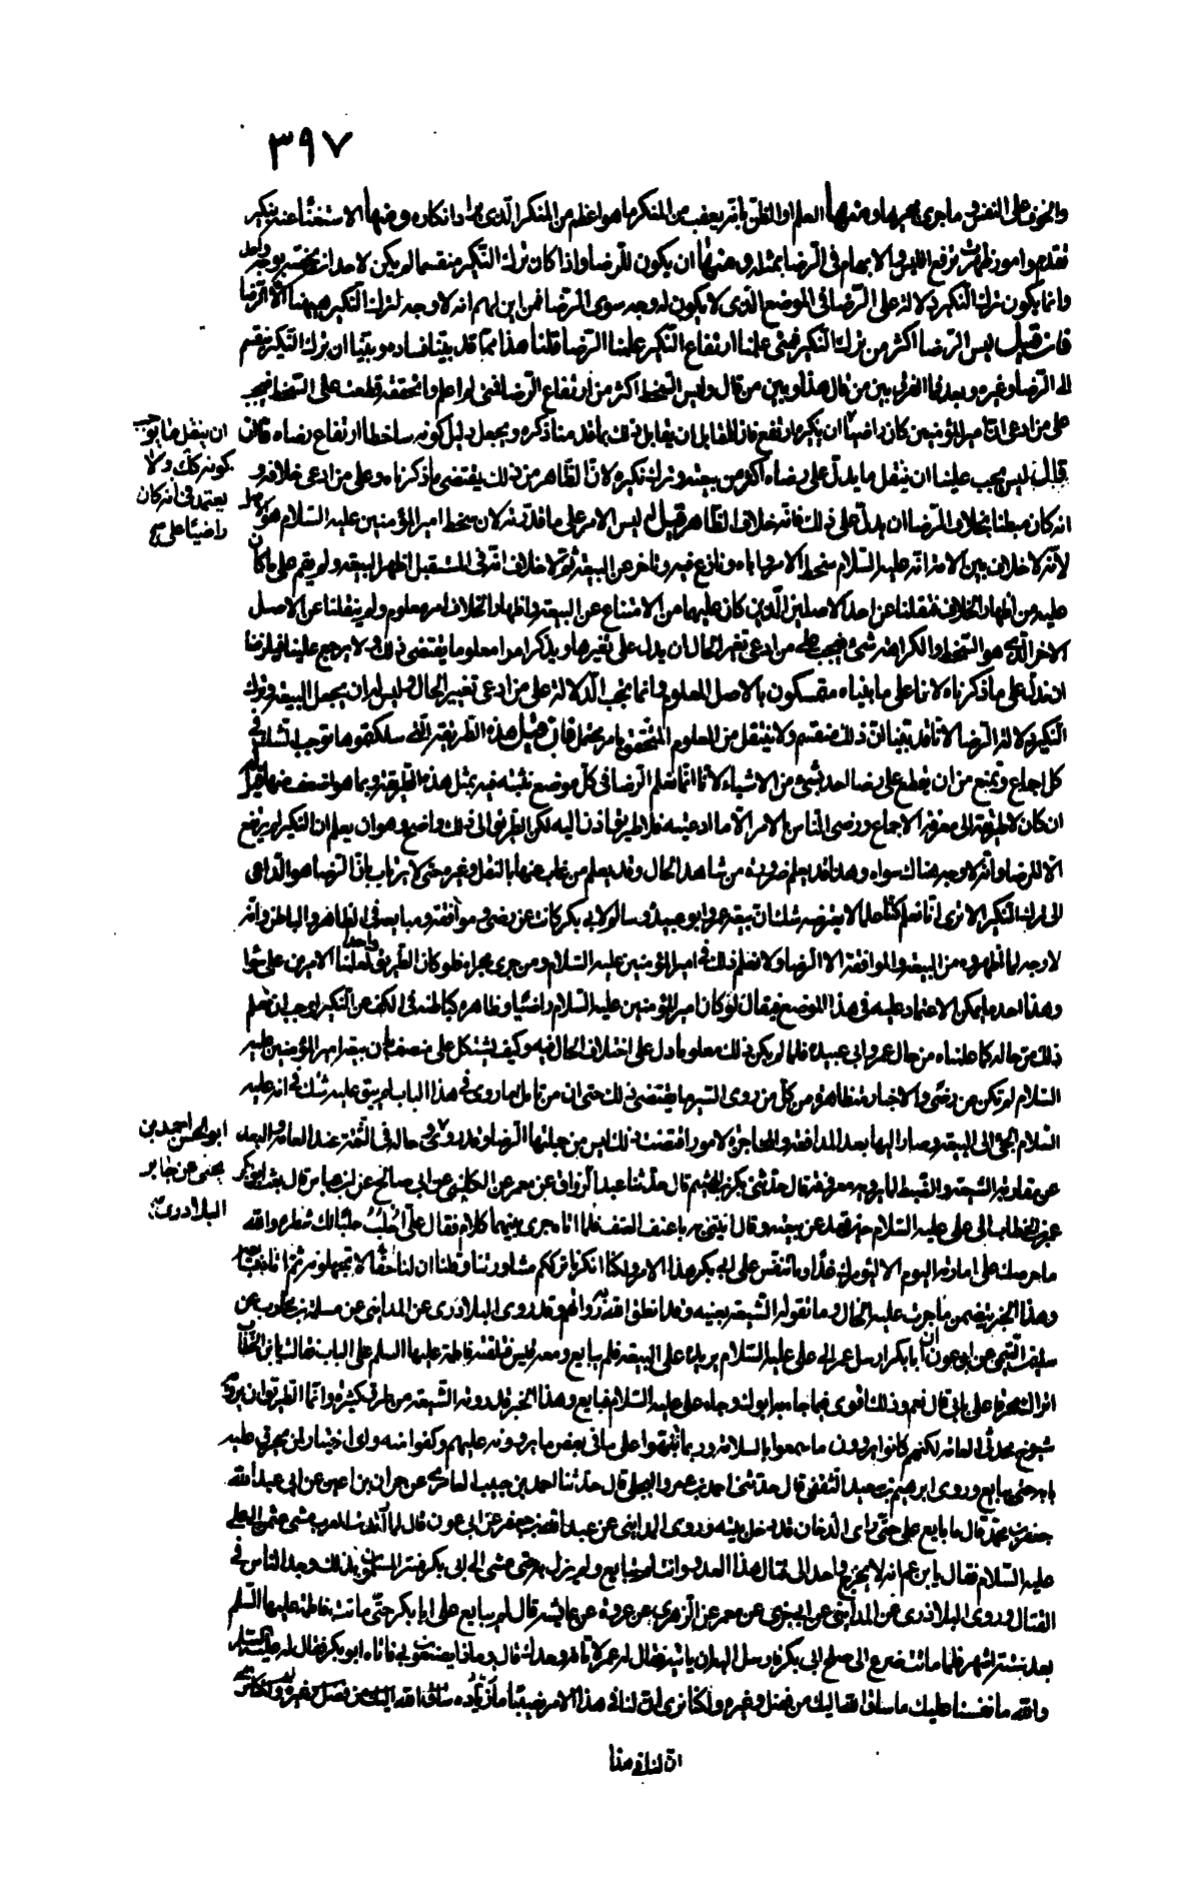 ٣٩٧
والخوف على النفس وما جرى مجراها ومنها العلم او الظن بانه يعقب من المنكر ما هو اعظم من المنكر الذى يراد انكاره ومنها الاستغناء عنه بنكير
تقدم وامور ظهرت ترفع اللبس والابهام فى الرضا بمثله ومنها ان يكون للرضا واذا كان ترك النكير منقسما لم يكن لاحد ان يخصه بوجه واحد
وانما يكون ترك النكير دلالة على الرضا فى الموضع الذى لا يكون له وجه سوى الرضا فمن اين لهم انه لا وجه لترك النكير هيهنا الا الرضا
فان قيل ليس الرضا اكثر من ترك النكير فمتى علمنا ارتفاع النكير علمنا الرضا قلنا هذا مما قد بينا فساده وبينا ان ترك النكير ينقسم
الى الرضا وغيره وبعد فما الفرق بين من قال هذا وبين من قال وليس السخط اكثر من ارتفاع الرضا فمتى لم اعلم واتحققه قطعت على السخط فيجب
على من ادعى ان امير المؤمنين كان راضيا ان ينقل ما يوجب كونه كذلك ولا يعتمد فى انه كان راضيا على ان نكيره ارتفع فان للمقابل ان يقابل ذلك بما قد منا ذكره ويجعل دليل كونه ساخطا ارتفاع رضاه فان
قال ليس يجب علينا ان ننقل ما يدل على رضاه اكثر من بيعته وترك نكيره لان الظاهر من ذلك يقتضى ما ذكرناه وعلى من ادعى خلافه و
انه كان مبطنا بخلاف الرضا ان يدل على ذلك فانه خلاف الظاهر قيل له ليس الامر على ما قدرته لان سخط امير المؤمنين عليه السلام هو الاصل
لانه لا خلاف بين الامة انه عليه السلام سخط الامر واباه ونازع فيه وتاخر عن البيعة ثم لا خلاف انه فى المستقبل اظهر البيعة ولم يقم على ما كان
عليه من اظهار الخلاف فنقلنا عن احد الاصلين الذين كان عليهما من الامتناع عن البيعة واظهار الخلاف امر معلوم ولم ينقلنا عن الاصل
الاخر الذى هو السخط والكراهة شئ فيجب على من ادعى تغير الحال ان يدل على تغيرها ويذكر امرا معلوما يقتضى ذلك ولا يرجع علينا فيلزمنا
ان ندل على ما ذكرناه لانا على ما بنيناه متمسكون بالاصل المعلوم وانما تجب الدلالة على من ادعى تغيير الحال وليس له ان يجعل البيعة وترك
النكير دلالة الرضا لانا قد بينا ان ذلك منقسم ولا ينتقل من المعلوم المتحقق بامر محتمل فان قيل هذه الطريقة التى سلكتموها توجب الشك فى
كل اجماع وتمنع من ان يقطع على رضا احد بشئ من الاشياء لانا انما نعلم الرضا فى كل موضع نثبته فيه بمثل هذه الطريقة وبما هو اضعف منها قيل له
ان كان لا طريق الى معرفة الاجماع ورضى الناس بالامر الا ما ادعيته فلا طريق اذن اليه لكن الطريق الى ذلك واضح وهو ان يعلم ان النكير لم يرتفع
الا للرضا وانه لا وجه هناك سواه وهذا قد يعلم ضرورة من شاهد الحال وقد يعلم من غاب عنها بالنقل وغيره حتى لا يرتاب بان الرضا هو الداعى
الى ترك النكير الا ترى انا نعلم كلنا علما لا يعترضه شك ان بيعة عمر وابو عبيدة وسالم لابى بكر كانت عن رضى وموافقة ومبايعة فى الظاهر والباطن وانه
لا وجه لما اظهروه من البيعة والموافقة الا الرضا ولا نعلم ذلك فى امير المؤمنين عليه السلام ومن جرى مجراه فلو كان الطريق واحدا لعلمنا الامرين على سواء
وهذا احد ما يمكن الاعتماد عليه فى هذا الموضع فيقال لو كان امير المؤمنين عليه السلام راضيا وظاهره كباطنه فى الكف عن النكير لوجب ان نعلم
ذلك من حاله كما علمناه من حال عمر وابى عبيدة فلما لم يكن ذلك معلوما دل على اختلاف الحال فيه وكيف يشكل على منصف ان بيعة امير المؤمنين عليه
السلام لم تكن عن رضى والاخبار متظاهرة من كل من روى السير بما يقتضى ذلك حتى ان من تامل ما روى فى هذا الباب لم يبق عليه شك فى انه عليه
السلام الجئ الى البيعة وصار اليها بعد المدافعة والمحاجزة لامور اقتضت ذلك ليس من جملتها الرضا وقد روى ابو الحسن احمد بن يحيى بن جابر البلاذرى وحاله فى الثقة عند العامة والبعد
عن مقاربة الشيعة والضبط لما يرويه معروفة قال حدثنى بكر بن الهيثم قال حدثنا عبد الرزاق عن معمر عن الكلبى عن ابى صالح عن ابن عباس قال بعث ابو بكر
عمر بن الخطاب الى على عليه السلام حين قعد عن بيعته وقال ائتنى به باعنف العنف فلما اتاه جرى بينهما كلام فقال على احلب حلبا لك شطره والله
ما حرصك على امارته اليوم الا ليؤمرك غدا وما ننفس على ابى بكر هذا الامر ولكنا انكرنا ترككم مشاورتنا وقلنا ان لنا حقا لا تجهلونه ثم اتاه فبايعه
وهذا الخبر يتضمن ما جرت عليه الحال وما تقوله الشيعة بعينه وقد انطق الله به رواتهم وقد روى البلاذرى عن المداينى عن مسلمة بن محارب عن
سليمان التيمى عن ابى عون ان ابا بكر ارسل عمر الى على عليه السلام يريده على البيعة فلم يبايع ومعه قبس فتلقته فاطمة عليها السلم على الباب فقالت يا بن الخطاب
اتراك محرقا على بابى قال نعم وذلك اقوى فيما جاء به ابوك وجاء على عليه السلام فبايع وهذا الخبر قد روته الشيعة من طرق كثيرة وانما الطريف ان يرويه
شيوخ محدثى العامة لكنهم كانوا يروون ما سمعوا بالسلامة وربما تنبهوا على ما فى بعض ما يروونه عليهم فكفوا منه واى اختيار لمن يحرق عليه
بابه حتى يبايع وروى ابرهيم بن سعيد الثقفى قال حدثنى احمد بن عمرو البجلى قال حدثنا احمد بن حبيب العامرى عن حمران بن اعين عن ابى عبد الله
جعفر بن محمد قال ما بايع على حتى راى الدخان قد دخل بيته وروى المداينى عن عبد الله بن جعفر عن ابى عون قال لما ارتدت العرب مشى عثمن الى على
عليه السلام فقال يا بن عم انه لا يخرج واحد الى قتال هذا العدو وانت لم تبايع ولم يزل به حتى مشى الى ابى بكر فسر المسلمون بذلك وجد الناس فى
القتال وروى البلاذرى عن المداينى عن ابى جرى عن معمر عن الزهرى عن عروة عن عايشة قال لم يبايع على ابا بكر حتى ماتت فاطمة عليها السلم
بعد ستة اشهر فلما ماتت ضرع الى صلح ابى بكر فارسل اليه ان ياتيه فقال له عمر لا تاته وحدك قال وماذا يصنعون بى فاتاه ابو بكر فقال له عليه السلم
والله ما نفسنا عليك ما ساق الله اليك من فضل وخير ولكنا نرى ان لنا فى هذا الامر نصيبا
ان لنا فى هذا